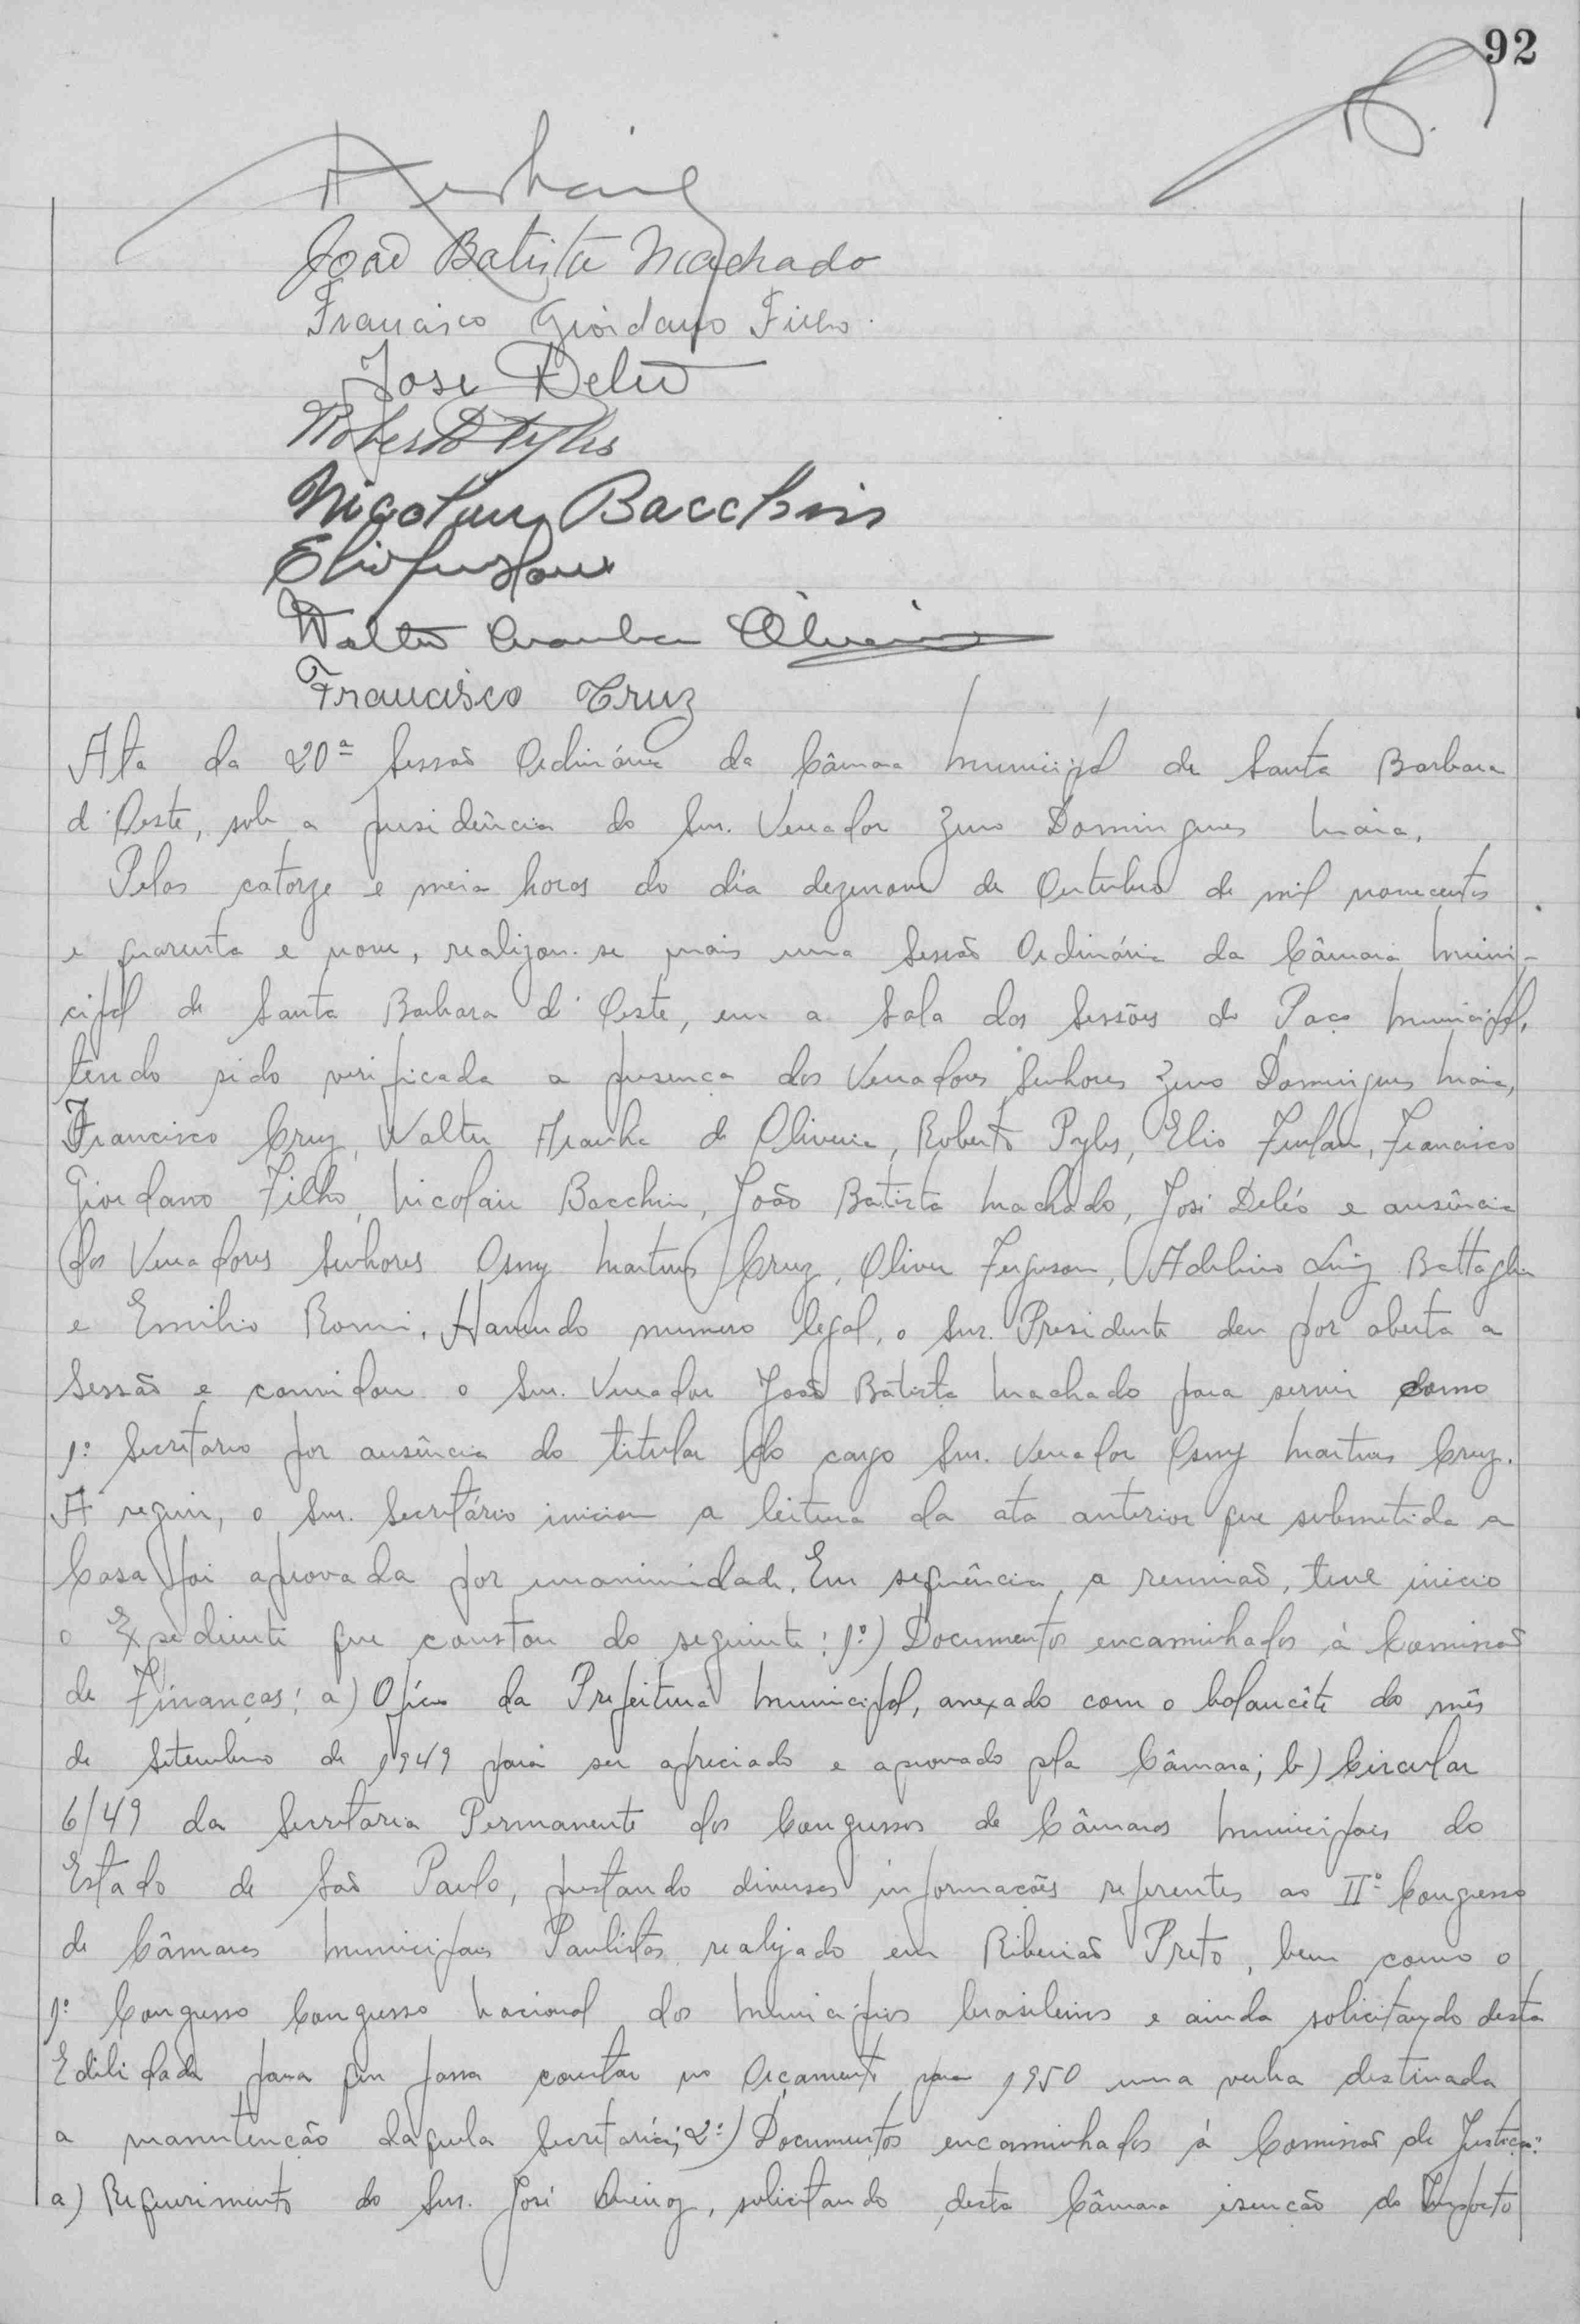 92
João Batista Machado
Francisco Giordano Filho.
José Deleo
Roberto Pyles
Nicolau Bacchin
Elio Furlan
Walter Aranha Oliveira
Francisco Cruz
Ata da 20ª Sessão Ordinária da Câmara Municipal de Santa Barbara
d'Oeste, sob a presidência do Snr. Vereador Zeno Domingues Maia.
Pelas catorze e meia horas do dia dezenove de Outubro de mil novecentos
e quarenta e nove, realizou-se mais uma Sessão Ordinária da Câmara Muni-
cipal de Santa Barbara d'Oeste, em a Sala das Sessões do Paço Municipal,
tendo sido verificada a presença dos Vereadores Senhores Zeno Domingues Maia,
Francisco Cruz, Walter Aranha de Oliveira, Roberto Pyles, Elio Furlan, Francisco
Giordano Filho, Nicolau Bacchin, João Batista Machado, José Deléo e ausência
dos Vereadores Senhores Osmy Martins Cruz, Oliver Ferguson, Adelino Luiz Battaglia
e Emilio Romi. Havendo numero legal, o Snr. Presidente deu por aberta a
Sessão e convidou o Snr. Vereador João Batista Machado para servir como
1º Secretario por ausência do titular do cargo Snr. Vereador Osmy Martins Cruz.
A seguir, o Snr. Secretário iniciou a leitura da ata anterior que submetida a
Casa foi aprovada por unanimidade. Em sequência a reunião, teve inicio
o Expediente que constou do seguinte: 1º) Documentos encaminhados á Comissão
de Finanças: a) Ofício da Prefeitura Municipal, anexado com o balancête do mês
de Setembro de 1949 para ser apreciado e aprovado pla Câmara; b) Circular
6/49 da Secretaria Permanente dos Congressos de Câmaras Municipais do
Estado de São Paulo, prestando diversas informações referentes ao IIº Congresso
de Câmaras Municipais Paulistas realizado em Ribeirão Preto, bem como o
1º Congresso Congresso Nacional dos Municípios brasileiros e ainda solicitando desta
Edilidade para que possa constar no Orçamento para 1950 uma verba destinada
a manutenção daquela Secretaria; 2º) Documentos encaminhados á Comissão de Justiça:
a) Requerimento do Snr. José Queiroz, solicitando desta Câmara isenção do Imposto